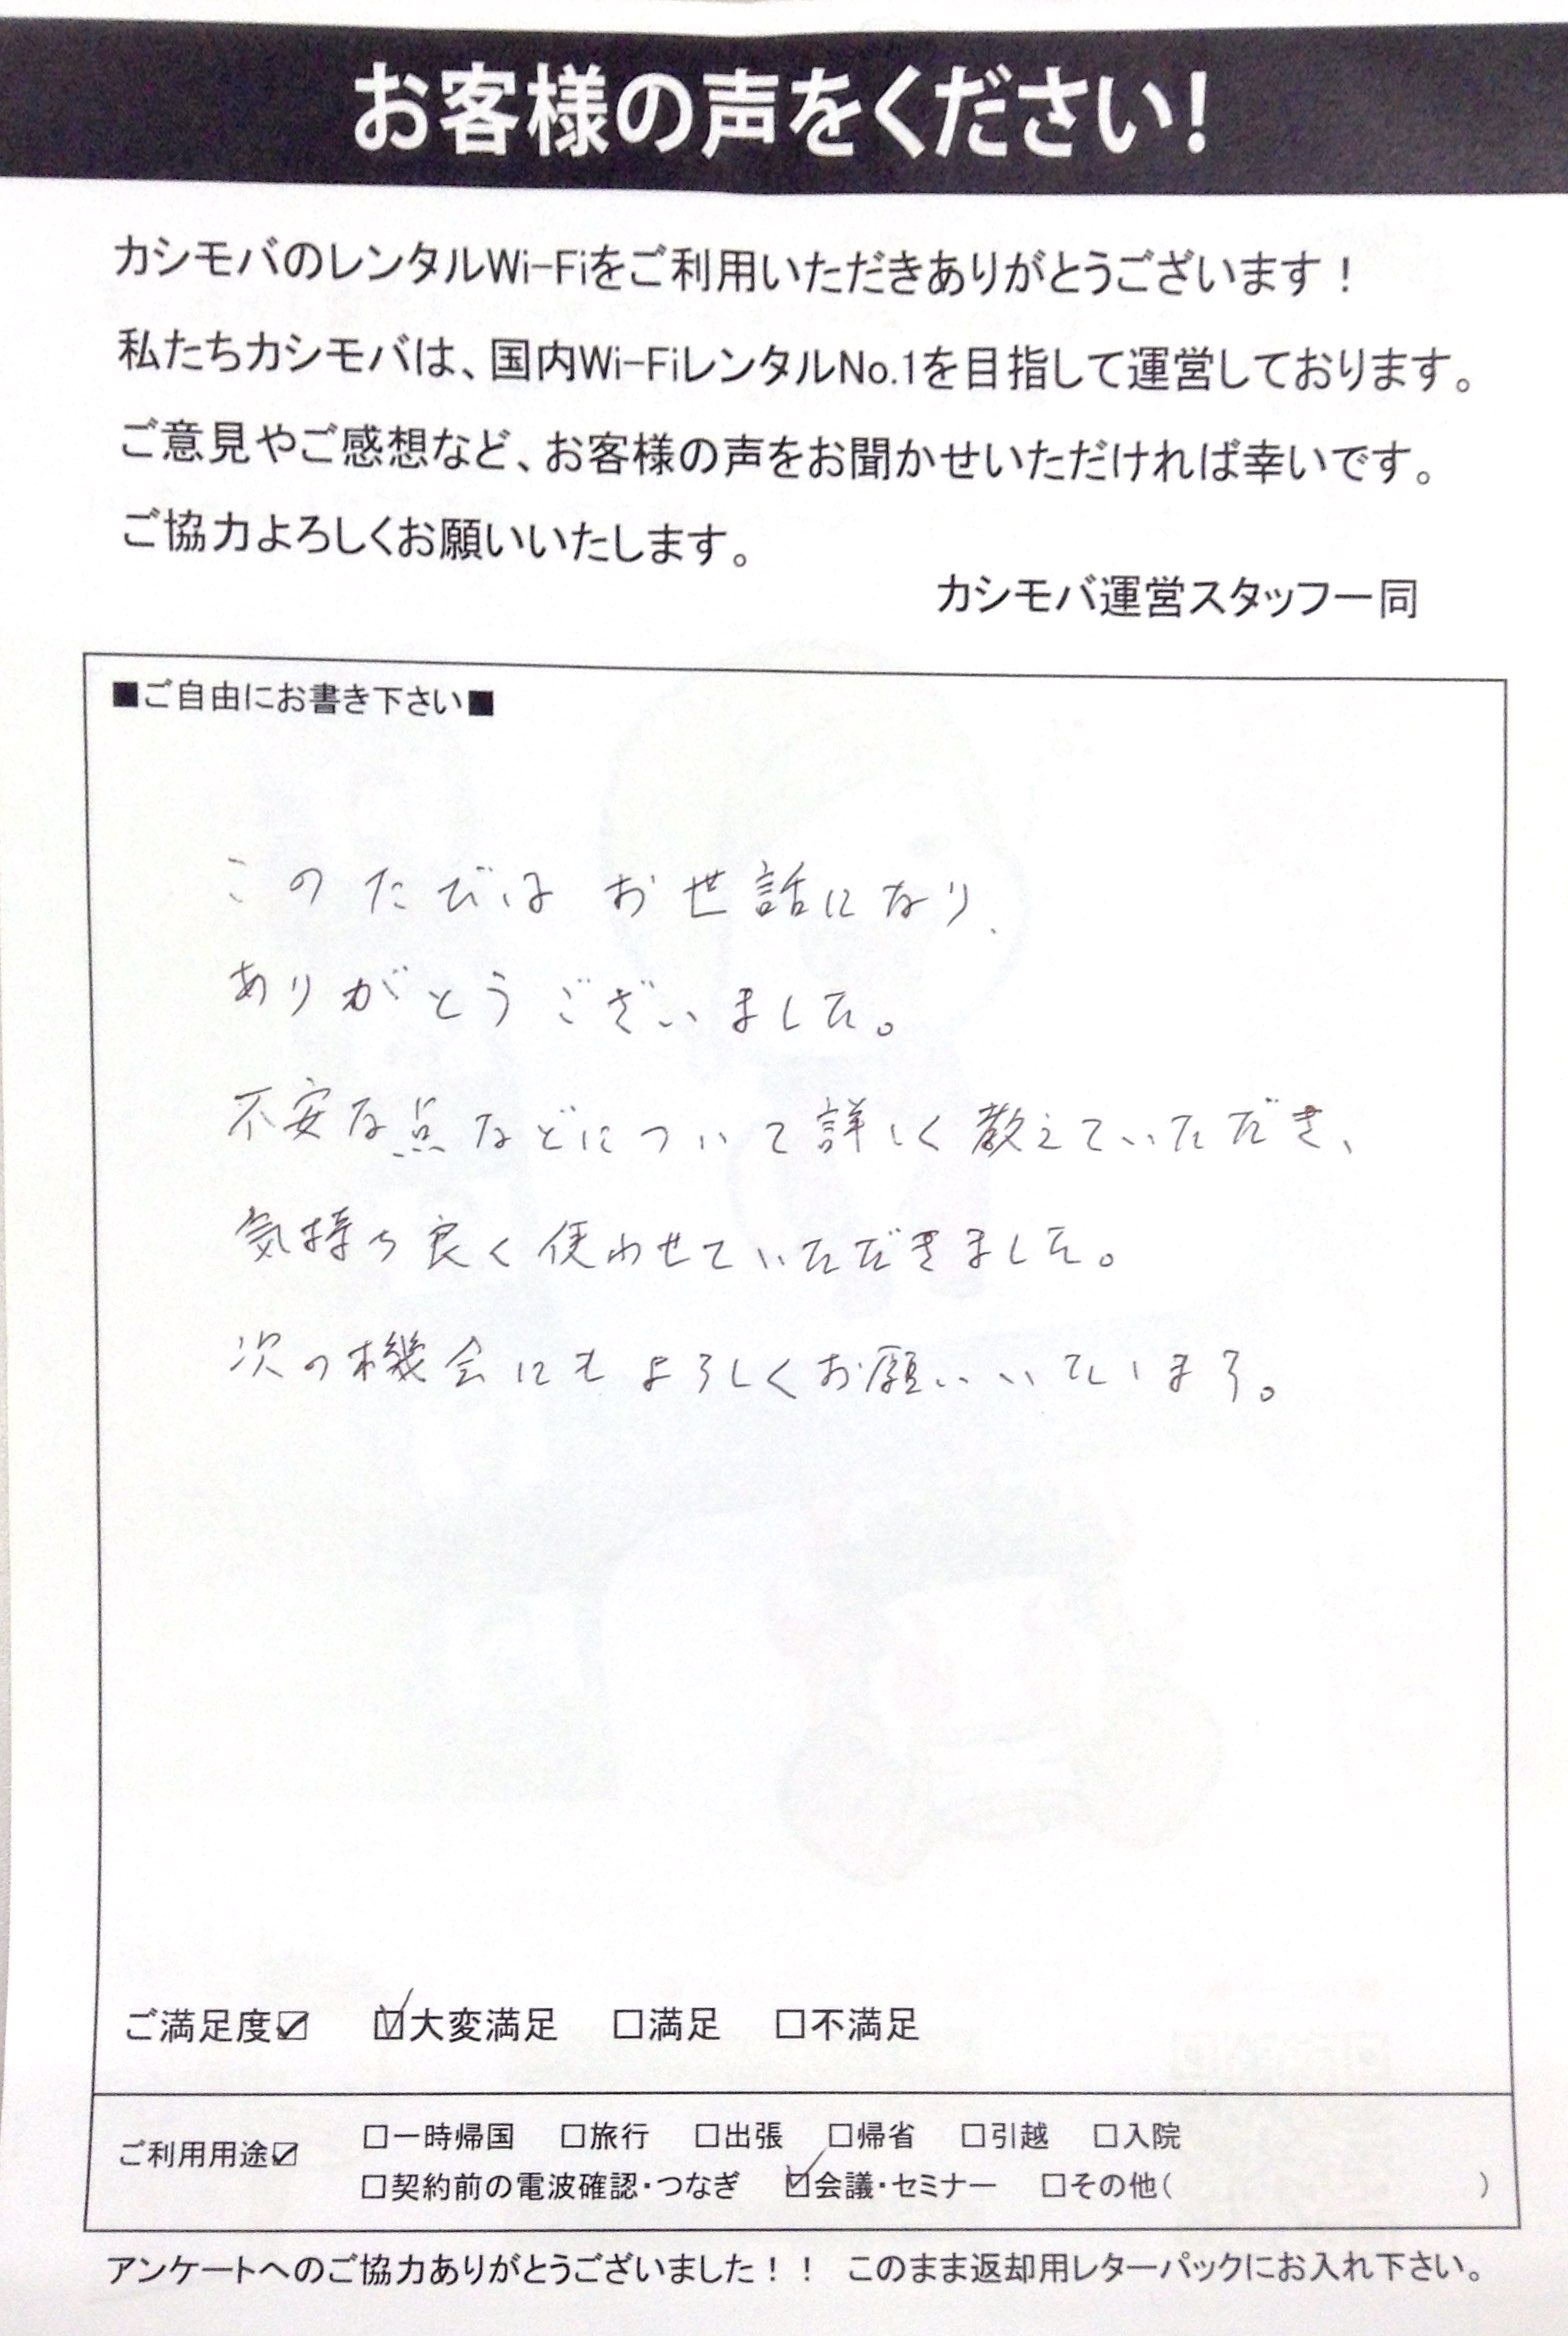 お客様の声をください!
カシモバのレンタルWi-Fiをご利用いただきありがとうございます！
私たちカシモバは、国内Wi-FiレンタルNo.1を目指して運営しております。
ご意見やご感想など、お客様の声をお聞かせいただければ幸いです。
ご協力よろしくお願いいたします。
カシモバ運営スタッフ一同
■ご自由にお書き下さい■
このたびは お世話になり、
ありがとうございました。
不安な点などについて詳しく教えていただき、
気持ち良く使わせていただきました。
次の機会にもよろしくお願いいたします。
ご満足度☑ ☑大変満足 □満足 □不満足
ご利用用途☑ □一時帰国 □旅行 □出張 □帰省 □引越 □入院
□契約前の電波確認・つなぎ ☑会議・セミナー □その他( )
アンケートへのご協力ありがとうございました！！ このまま返却用レターパックにお入れ下さい。